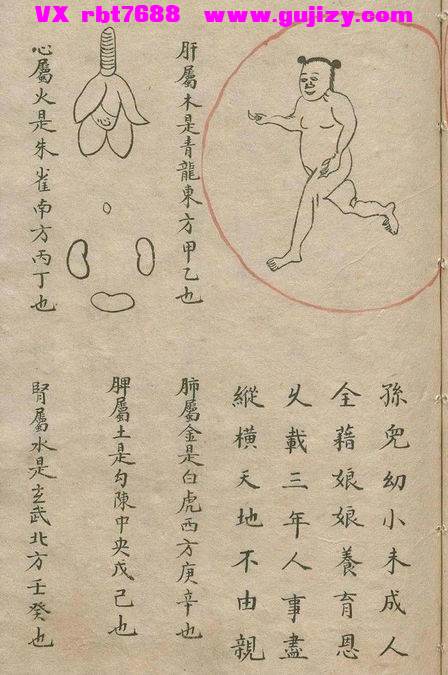 VX rbt7688 www.gujizy.com
孫兒幼小未成人
全藉娘娘養育恩
乆載三年人事盡
縱橫天地不由親
肝屬木是青龍東方甲乙也
心
心屬火是朱雀南方丙丁也
肺屬金是白虎西方庚辛也
脾屬土是勾陳中央戊己也
腎屬水是玄武北方壬癸也